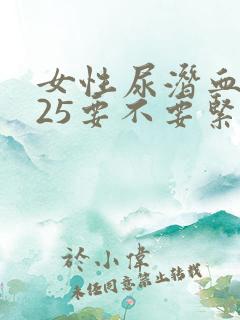 女性尿潛血
25要不要緊
於小偉
未经同意禁止转载